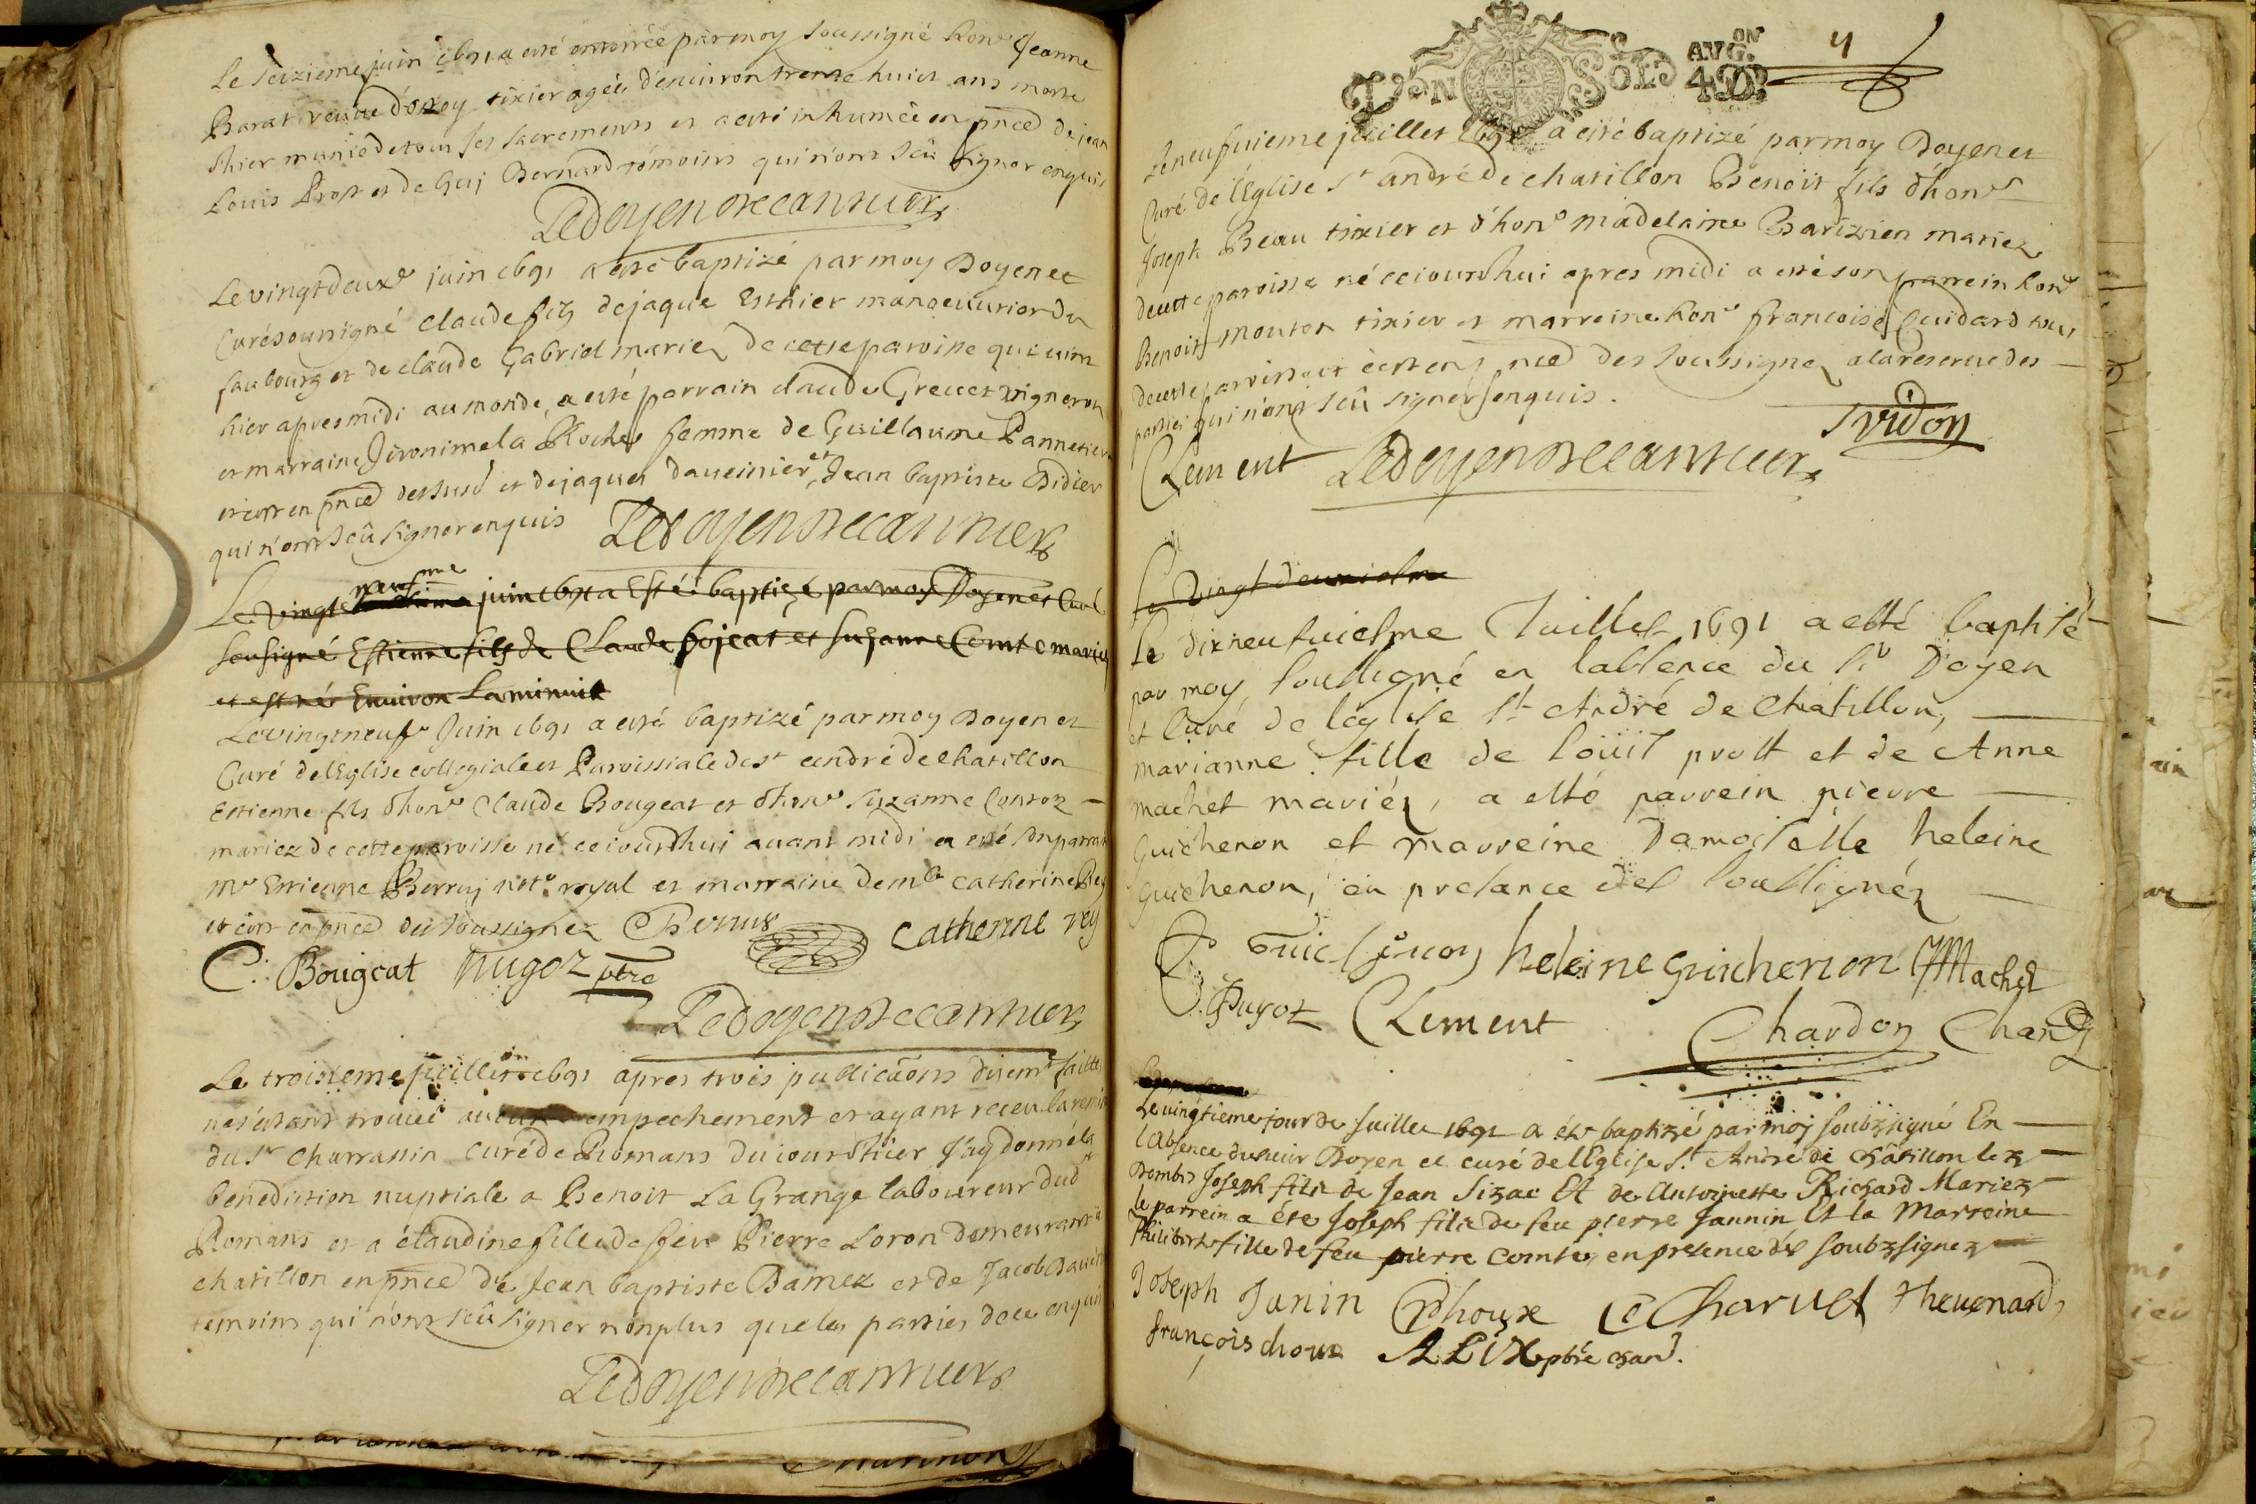 Le seizieme juin 1691 a esté enterrée par moy soussigné hon.e Jeanne
Barat veuve d'oroy tixier agée d'environ trente huict ans morte
hier munie de tous ses sacrements et a esté inhumée en pnce de jean
Louis Prost et de Guy Bernard témoins qui n'ont sçû signer enquis
Le doyen
Le vingt deuxe juin 1691 a esté baptizé par moy Doyen et
Curé soussigné claude filz de jaque Esthier manoeuvrier du
faubourg et de claude Gabriel mariez de cette paroisse qui vint
hier apres midi au monde, a esté parrain claude Grecet vigneron
et marraine Jéronime la Roche femme de Guillaume Pannetier
et ce en pnce et de jaques Davernier et Jean baptiste Didier
qui n'ont sçû signer enquis Le doyen
Le vingt neufme juin 1691 a Esté baptizé par moy Doyen et Curé
sousigné Estienne fils de Claude bojeat et Suzanne Comte mariez
et est né Environ La minuit
Le vingt neufe Juin 1691 a esté baptizé par moy Doyen et
Curé de l'Eglise collegiale et Paroissiale de st André de chatillon
Estienne fils d'hon.e Claude Bougeat et d'hon.e Suzanne Contoz
mariez de cette paroisse né cejourd'hui avant midi a esté son parrain
Me Estienne Berruj not.e royal et marraine demlle catherine Rey
et ce en pnce des soussignez Berruj Catherine rey
C. Bougeat hugoz ptre
Le doyen
Le troisieme juillet 1691 apres trois publications duem.t faittes
ne s'étant trouvé aucun empechement et ayant receu la remise
du sr charrassin curé de Romans du jour d'hier j'ay donné la
benediction nuptiale a Benoit La Grange laboureur dud.
Romans et a claudine fille de feu Pierre Loron demeurant a
chatillon en pnce de Jean baptiste Bamez et de Jacob
temoins qui n'ont sçû signer non plus que les parties de ce enquis
Le doyen
DEN SOLS AUG.ON 4 D. 4
Le neufvieme juillet 1691 a esté baptizé par moy Doyen et
Curé de l'Eglise st andré de chatillon Benoit fils d'hon.e
Joseph Beau tixier et d'hon.e madelaine Barizien mariez
de cette paroisse né cejourdhui apres midi a esté son parrein hon.e
Benoit mouton tixier et marreine hon.e francoise Cuidard tous
de cette paroisse et ce en pnce des soussignez a la reserve des
parties qui n'ont sçû signer enquis.
Clement Le doyen
Le vingt deuxielme
Le dixneufvielme Juillet 1691 a esté baptisé
par moy soussigné en lablence du Sr Doyen
et Curé de léglise St André de chatillon,
marianne fille de loüis prost et de Anne
machet mariéz, a esté parrein pierre
Guichenon et marreine Damoiselle heleine
Guichenon, en presance des soussignéz
Guichenon heleine Guichenon Machet
C. Puyoz Clement Chardon
Le vingtieme jour de Juillet 1691 a été baptizé par moy soubzsigné En
l'Absence du sieur Doyen et curé de l'Eglise St. André de châtillon lez
Dombes Joseph filz de Jean Sizac Et de Antoinette Richard Mariez
le parrein a été Joseph filz de feu pierre Jannin Et la Marreine
Philiberte fille de feu pierre comte, en presence des soubzsignez
Joseph Janin Charvet Thevenard
françois choux ALIX pbre chan.